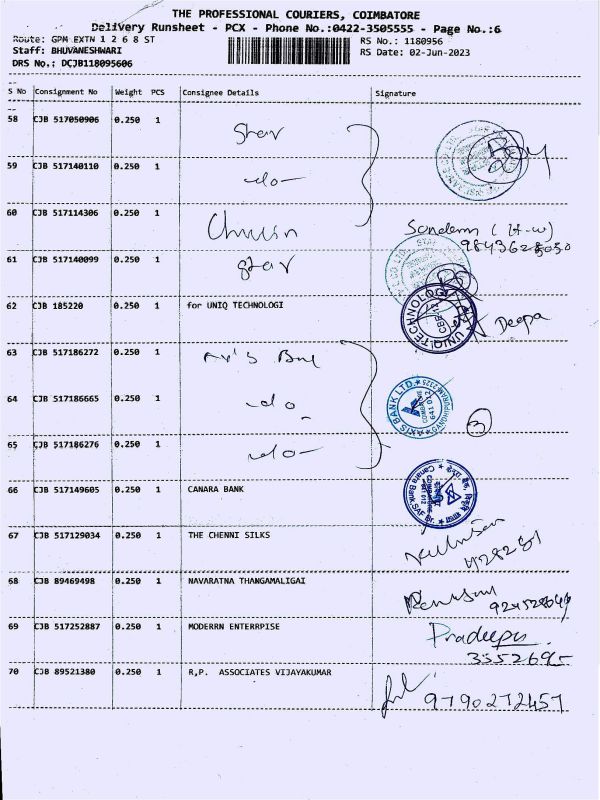 THE PROFESSIONAL COURIERS, COIMBATORE
Delivery Runsheet - PCX - Phone No.:0422-3505555 - Page No.:6
Route: GPM EXTN 1 2 6 8 ST
RS No.: 1180956
Staff: BHUVANESHWARI
RS Date: 02-Jun-2023
DRS No.: DCJB118095606
S No Consignment No Weight PCS Consignee Details Signature
58 CJB 517050906 0.250 1 Star
59 CJB 517140110 0.250 1 -do-
60 CJB 517114306 0.250 1
9843628050
61 CJB 517140099 0.250 1 Star
62 CJB 185220 0.250 1 for UNIQ TECHNOLOGI Deepa
UNIQ TECHNOLOGY
63 CJB 517186272 0.250 1
64 CJB 517186665 0.250 1 -do- 3
AXIS BANK LTD.
65 CJB 517186276 0.250 1 -do-
66 CJB 517149605 0.250 1 CANARA BANK
Canara Bank
67 CJB 517129034 0.250 1 THE CHENNI SILKS
68 CJB 89469498 0.250 1 NAVARATNA THANGAMALIGAI
69 CJB 517252887 0.250 1 MODERRN ENTERRPISE Pradeepa
3552695
70 CJB 89521380 0.250 1 R,P. ASSOCIATES VIJAYAKUMAR
9790272457